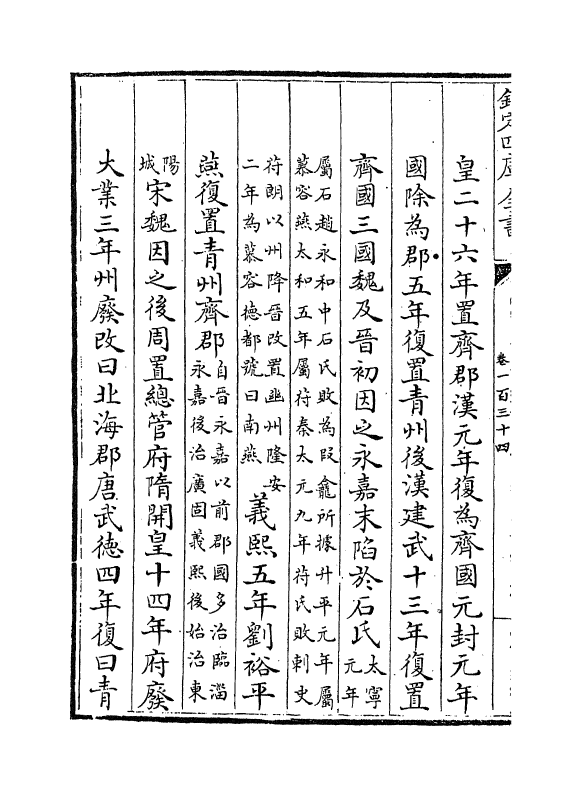 欽定四庫全書
卷一百三十四
皇二十六年置齊郡漢元年復為齊國元封元年
國除為郡五年復置青州後漢建武十三年復置
齊國三國魏及晉初因之永嘉末陷於石氏太寧元年
屬石趙永和中石氏敗為段龕所據升平元年屬
慕容燕太和五年屬苻秦太元九年苻氏敗刺史
苻朗以州降晉改置幽州隆安
二年為慕容德都號曰南燕義熙五年劉裕平
燕復置青州齊郡自晉永嘉以前郡國多治臨淄
永嘉後治廣固義熙後始治東
陽城宋魏因之後周置總管府隋開皇十四年府廢
大業三年州廢改曰北海郡唐武徳四年復曰青